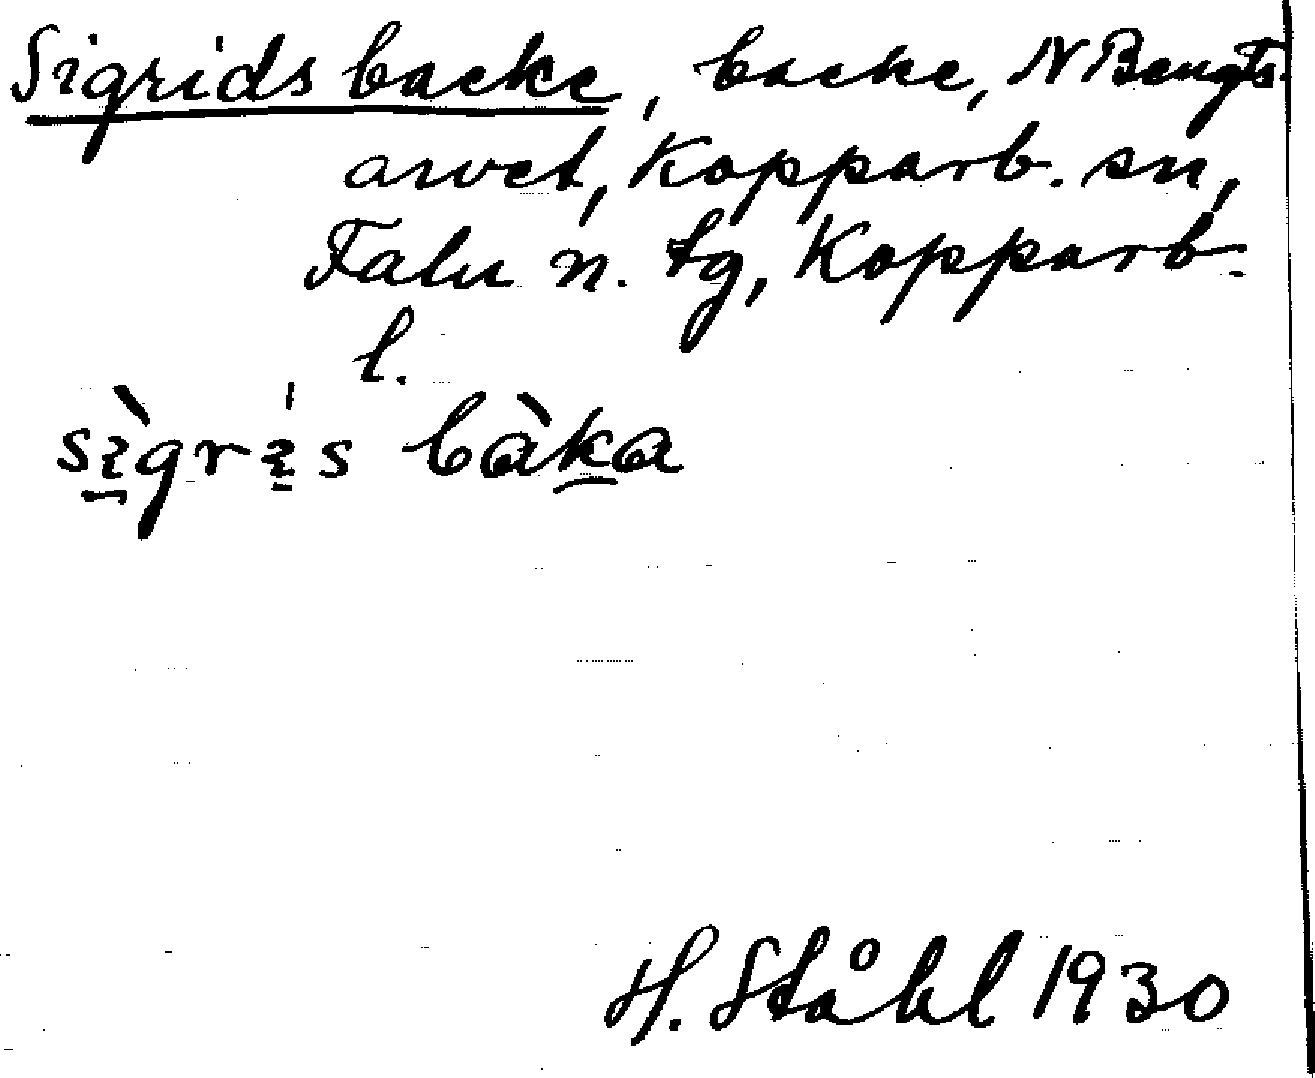 Sigrids backe, backe, N Bengts-
arvet, Kopparb. sn,
Falu n. tg, Kopparb.
l.
sìgrìs bàka
H. Ståhl 1930